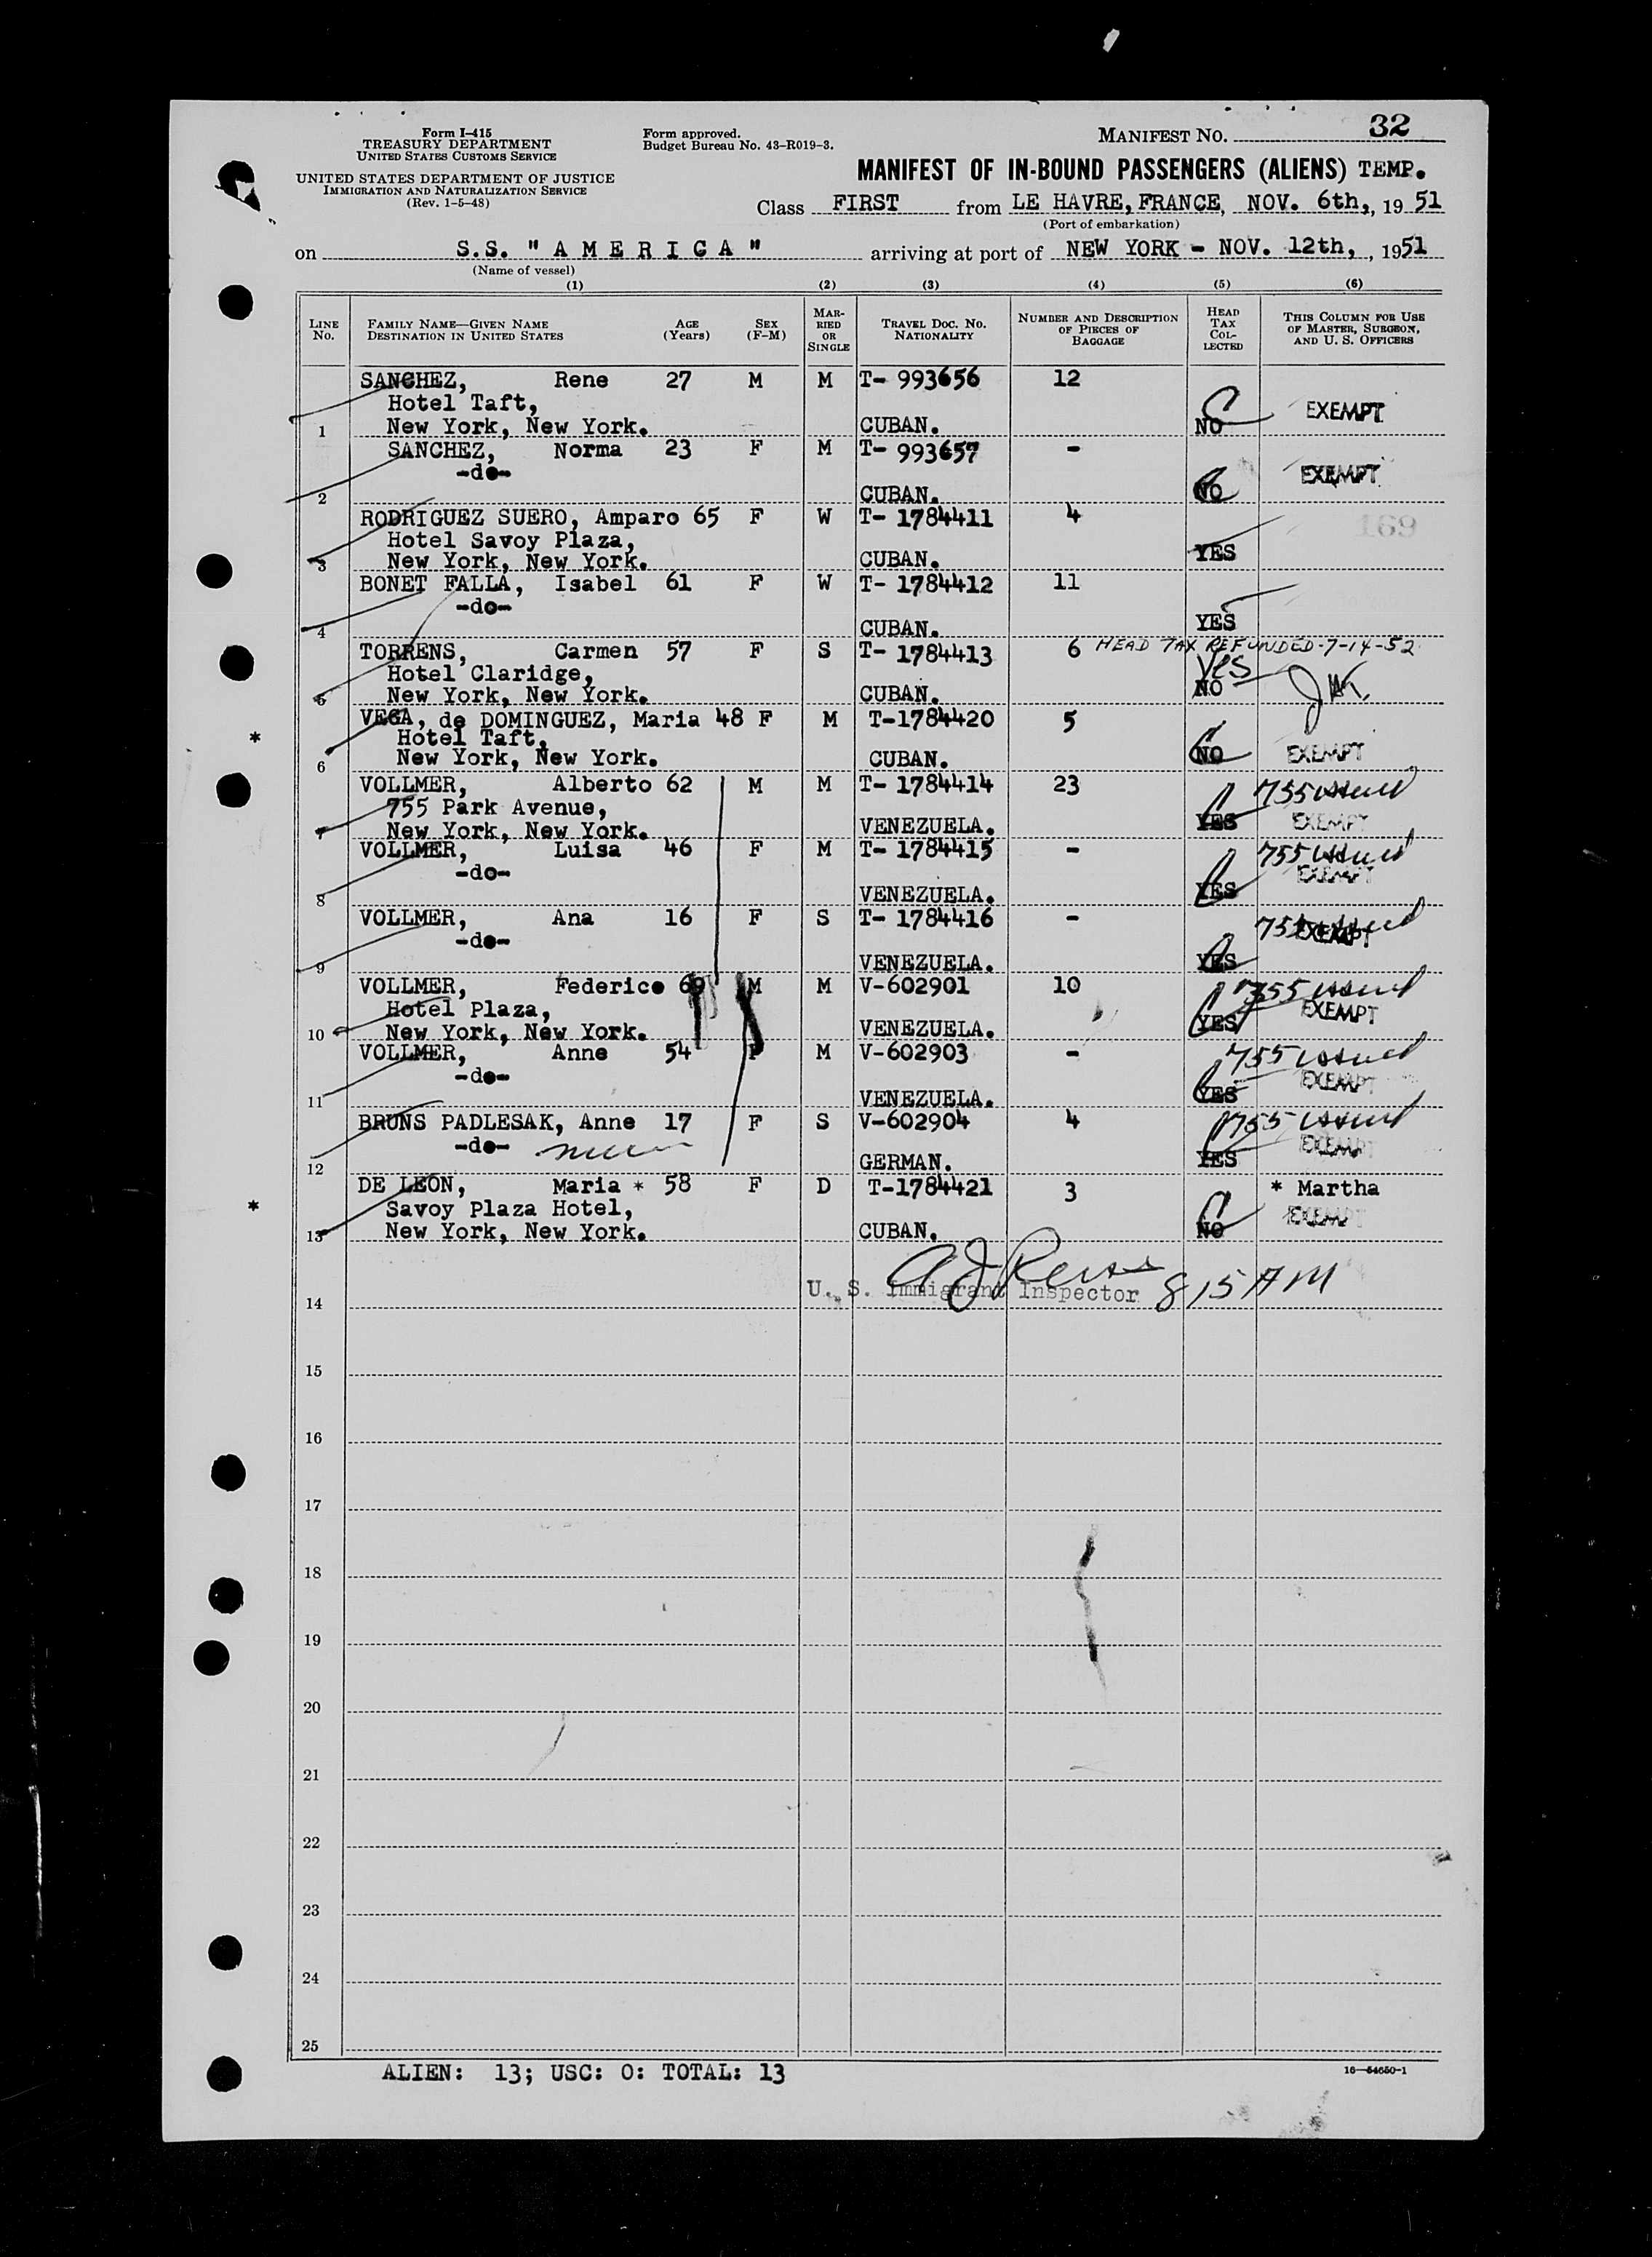 Form I-415
TREASURY DEPARTMENT
UNITED STATES CUSTOMS SERVICE
UNITED STATES DEPARTMENT OF JUSTICE
IMMIGRATION AND NATURALIZATION SERVICE
(Rev. 1-5-48)
Form approved.
Budget Bureau No. 43-R019-3.
MANIFEST NO. 32
MANIFEST OF IN-BOUND PASSENGERS (ALIENS) TEMP.
Class FIRST from LE HAVRE, FRANCE, NOV. 6th, , 19 51
(Port of embarkation)
on S.S. "AMERICA" arriving at port of NEW YORK - NOV. 12th, , 1951
(Name of vessel)
(1) (2) (3) (4) (5) (6)
LINE No. FAMILY NAME—GIVEN NAME DESTINATION IN UNITED STATES AGE (Years) SEX (F-M) MARRIED OR SINGLE TRAVEL DOC. NO. NATIONALITY NUMBER AND DESCRIPTION OF PIECES OF BAGGAGE HEAD TAX COLLECTED THIS COLUMN FOR USE OF MASTER, SURGEON, AND U. S. OFFICERS
SANCHEZ, Rene 27 M M T- 993656 12
Hotel Taft, EXEMPT
1 New York, New York. CUBAN. NO
SANCHEZ, Norma 23 F M T- 993657 -
-do- EXEMPT
2 CUBAN. NO
RODRIGUEZ SUERO, Amparo 65 F W T- 1784411 4
Hotel Savoy Plaza, 169
3 New York, New York. CUBAN. YES
BONET FALLA, Isabel 61 F W T- 1784412 11
-do-
4 CUBAN. YES
TORRENS, Carmen 57 F S T- 1784413 6 HEAD TAX REFUNDED-7-14-52
Hotel Claridge, Yes
5 New York, New York. CUBAN. NO
VEGA, de DOMINGUEZ, Maria 48 F M T-1784420 5
* Hotel Taft,
6 New York, New York. CUBAN. NO EXEMPT
VOLLMER, Alberto 62 M M T- 1784414 23 755 issued
755 Park Avenue,
7 New York, New York. VENEZUELA. YES EXEMPT
VOLLMER, Luisa 46 F M T- 1784415 - 755 issued
-do- EXEMPT
8 VENEZUELA. YES
VOLLMER, Ana 16 F S T- 1784416 - 755 issued
-do- EXEMPT
9 VENEZUELA. YES
VOLLMER, Federico 69 M M V-602901 10 755 issued
Hotel Plaza, EXEMPT
10 New York, New York. VENEZUELA. YES
VOLLMER, Anne 54 F M V-602903 - 755 issued
-do- EXEMPT
11 VENEZUELA. YES
BRUNS PADLESAK, Anne 17 F S V-602904 4 755 issued
-do- EXEMPT
12 GERMAN. YES
DE LEON, Maria * 58 F D T-1784421 3 * Martha
* Savoy Plaza Hotel, EXEMPT
13 New York, New York. CUBAN. NO
U. S. Immigrant Inspector 815 AM
14
15
16
17
18
19
20
21
22
23
24
25
ALIEN: 13; USC: 0: TOTAL: 13
16—54650-1